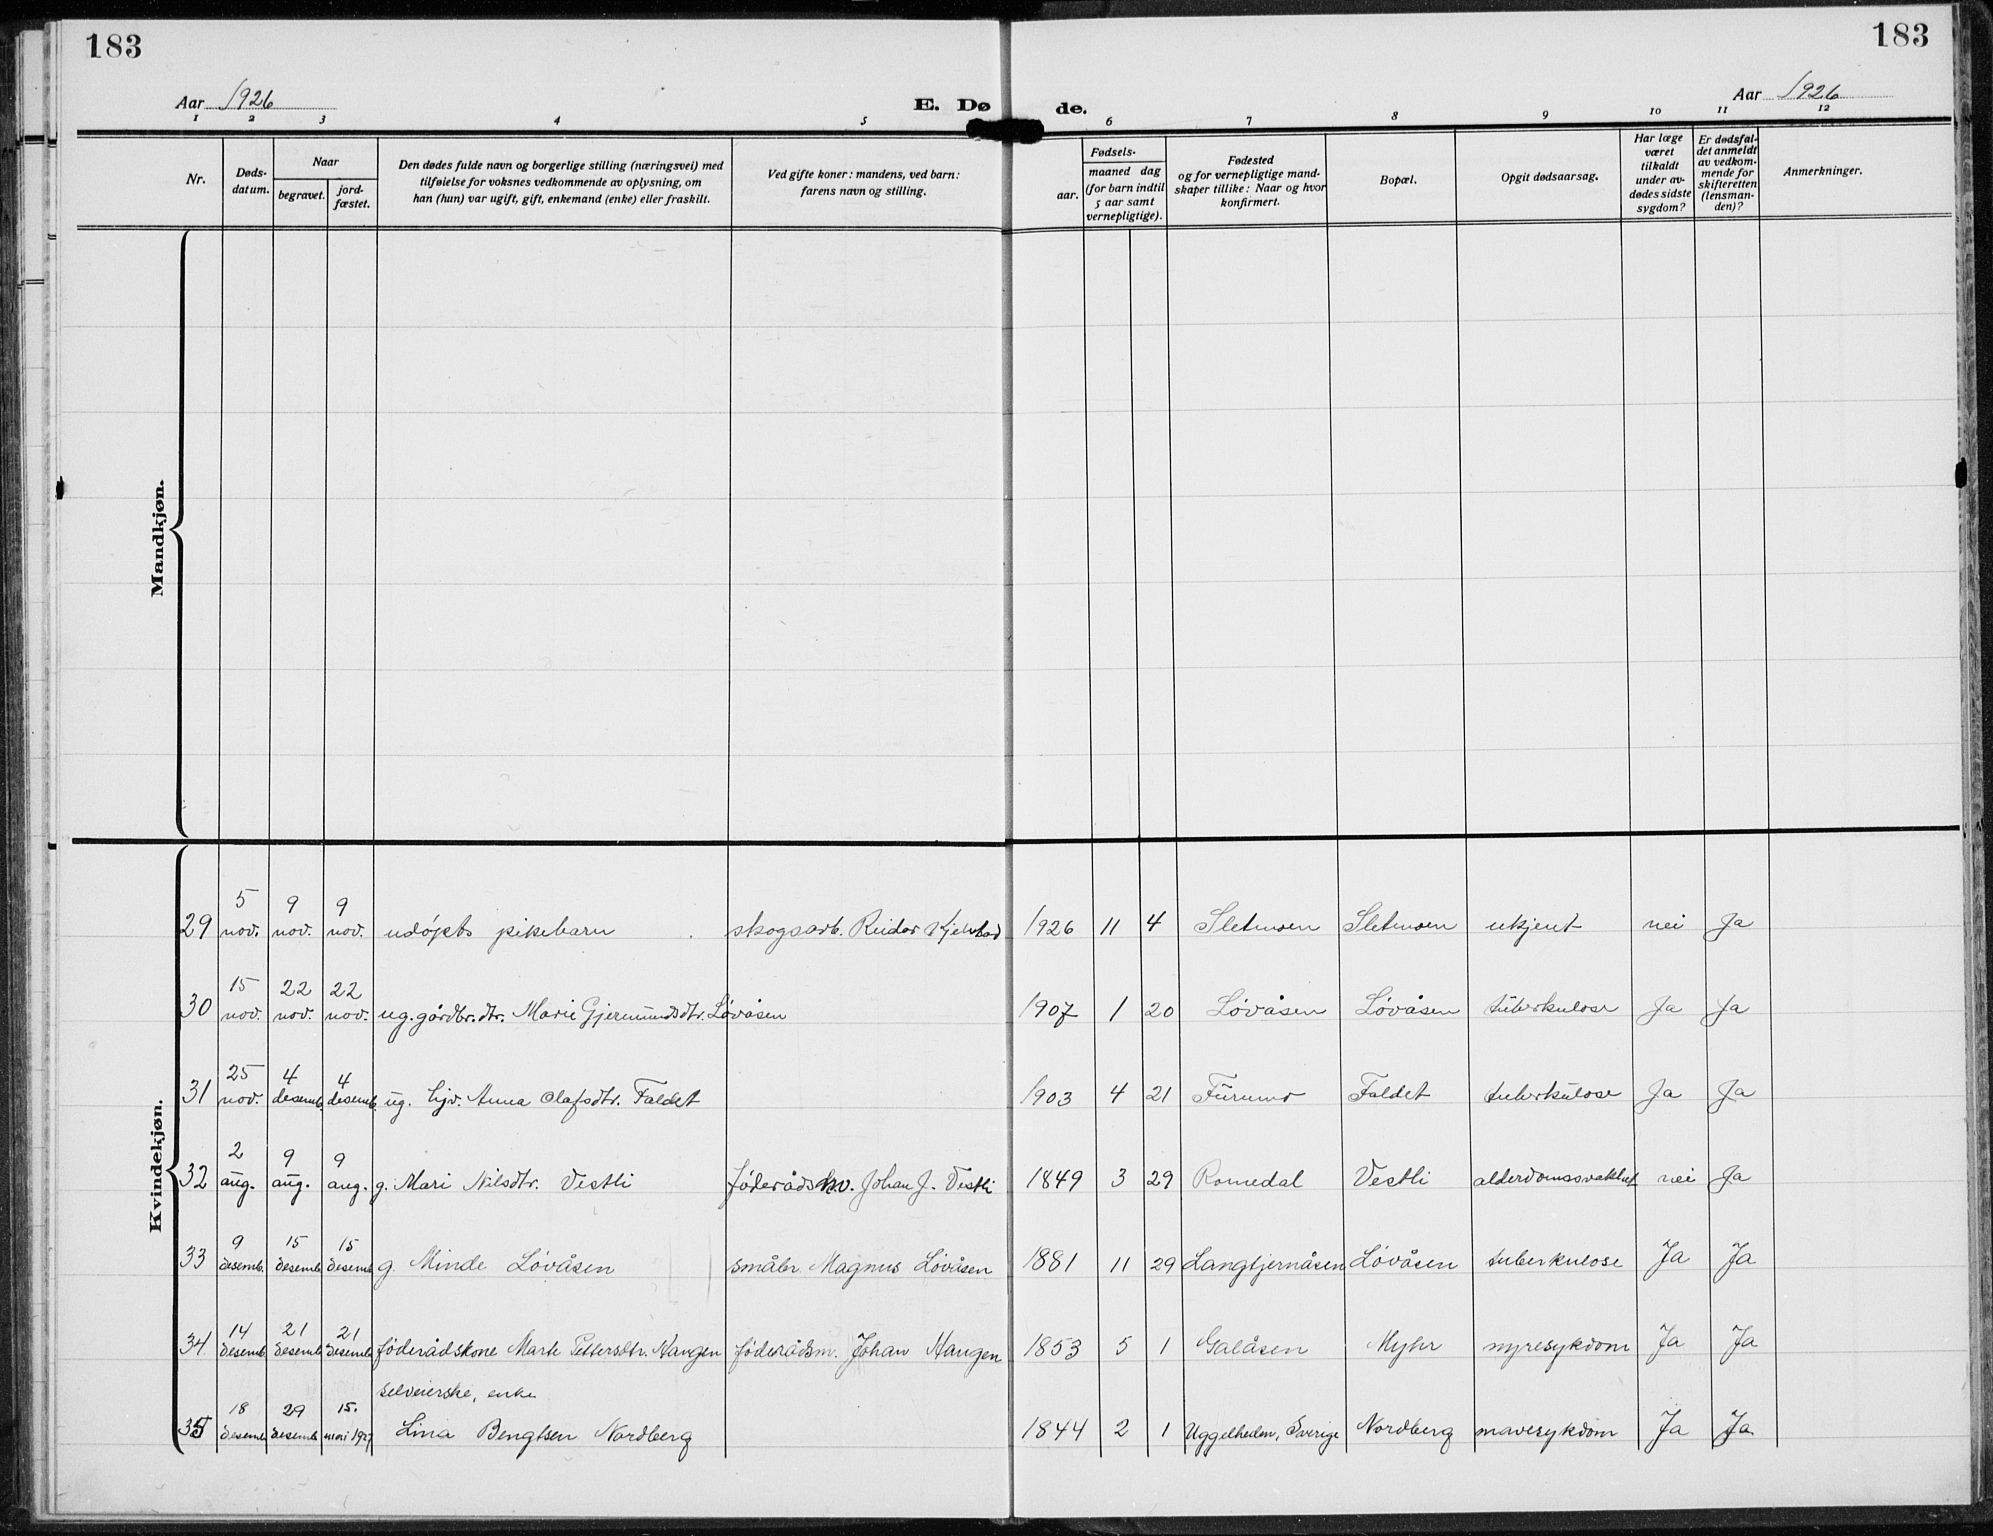 183
183
Aar 1926
E. Dø
de.
Aar 1926
1 2 3 4 5 6 7 8 9 10 11 12
Nr.
Døds-
datum.
Naar
begravet.
jord-
fæstet.
Den dødes fulde navn og borgerlige stilling (næringsvei) med
tilføielse for voksnes vedkommende av oplysning, om
han (hun) var ugift, gift, enkemand (enke) eller fraskilt.
Ved gifte koner: mandens, ved barn:
farens navn og stilling.
Fødsels-
aar.
maaned dag
(for barn indtil
5 aar samt
vernepligtige).
Fødested
og for vernepligtige mand-
skaper tillike: Naar og hvor
konfirmert.
Bopæl.
Opgit dødsaarsag.
Har læge
været
tilkaldt
under av-
dødes sidste
sygdom?
Er dødsfal-
det anmeldt
av vedkom-
mende for
skifteretten
(lensman-
den)?
Anmerkninger.
Mandkjøn.
Kvindekjøn.
5 9 9
29 nov. nov. nov. udøpts pikebarn skogsarb. Reidar 1926 11 4 Sletmoen Sletmoen ukjent nei Ja
15 22 22
30 nov. nov. nov. ug. gårdbr.dtr. Marie Gjermundsdtr. Løvåsen 1907 1 20 Løvåsen Løvåsen tuberkulose Ja Ja
25 4 4
31 nov. desemb. desemb. ug. hjv. Anna Olafsdtr. Faldet 1903 4 21 Furumo Faldet tuberkulose Ja Ja
2 9 9
32 aug. aug. aug. g. Mari Nilsdtr. Vestli føderåds Johan J. Vestli 1849 3 29 Romedal Vestli alderdomssvakhet nei Ja
9 15 15
33 desemb. desemb. desemb. g. Minde Løvåsen småbr. Magnus Løvåsen 1881 11 29 Langtjernåsen Løvåsen tuberkulose Ja Ja
14 21 21
34 desemb. desemb. desemb. føderådskone Marte Pettersdtr. Haugen føderådsm. Johan Haugen 1853 5 1 Galåsen Myhr nyresykdom Ja Ja
selveierske, enke
18 29 15.
35 desemb. desemb. mai 1927 Lina Bengtsen Nordberg 1844 2 1 Uggelheden, Sverige Nordberg mavesykdom Ja Ja